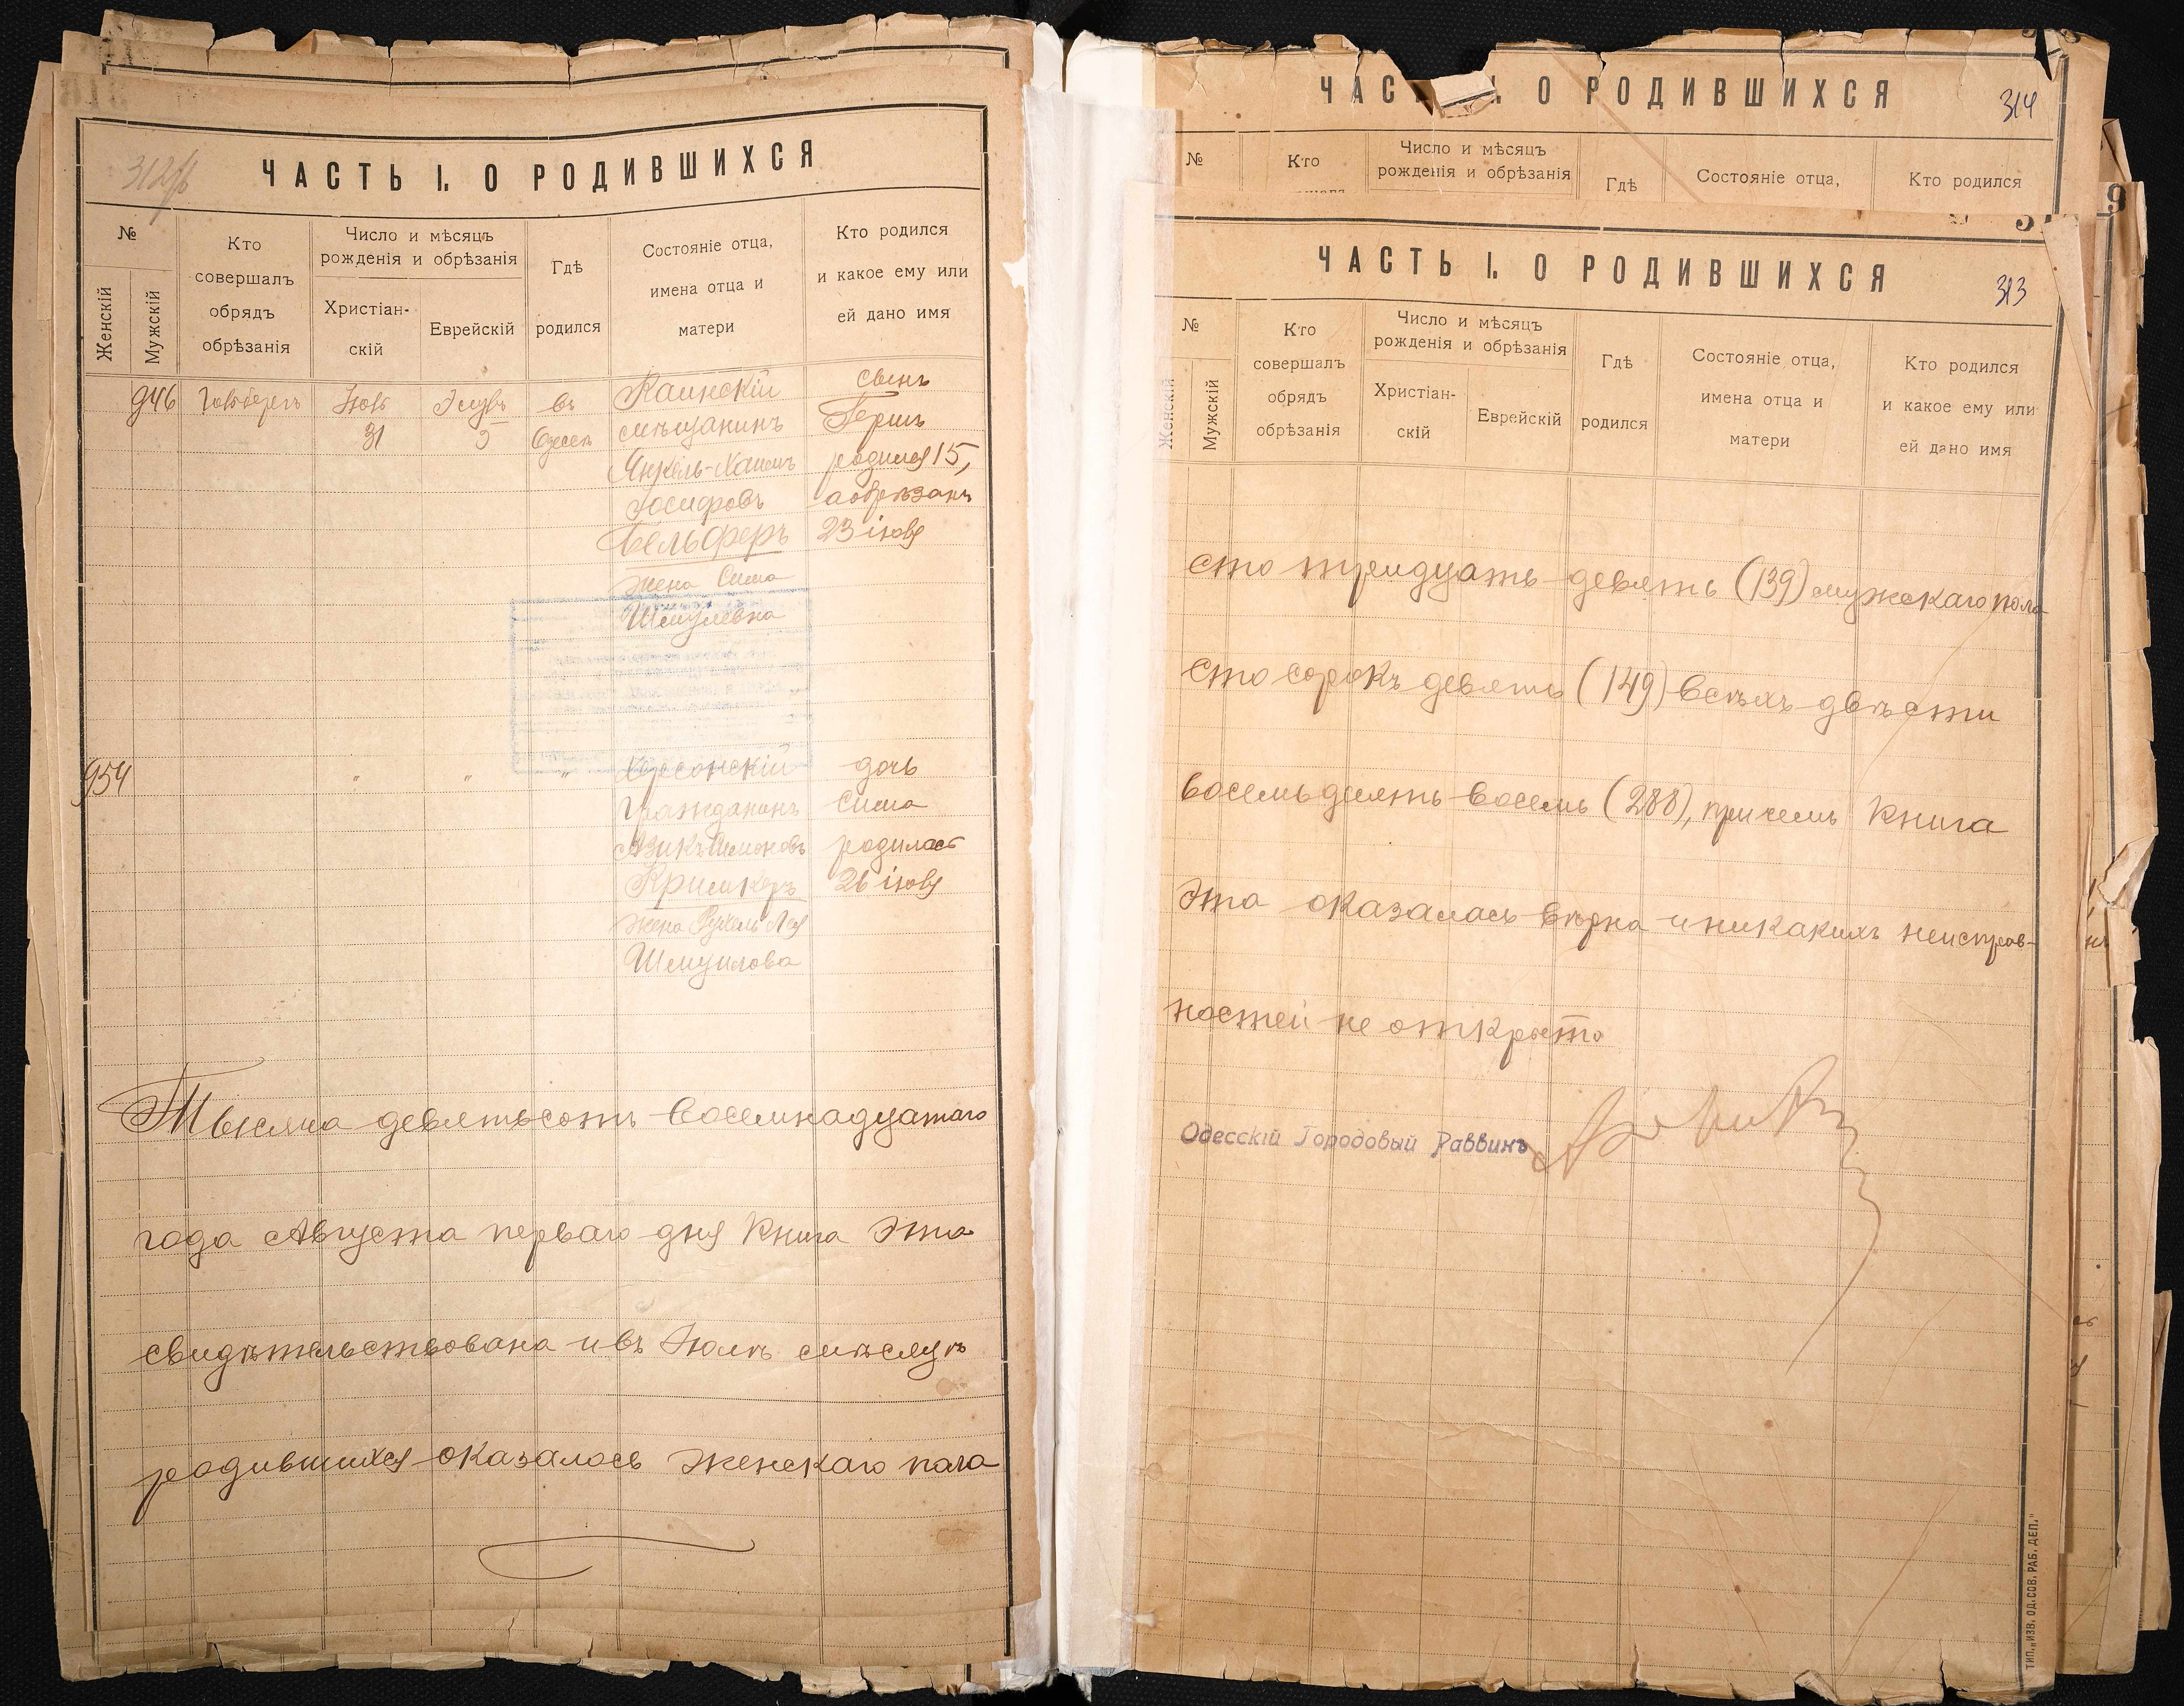 312об
ЧАСТЬ I. О РОДИВШИХСЯ
№
Женскій
Мужскій
Кто
совершалъ
обрядъ
обрѣзанія
Число и мѣсяцъ
рожденія и обрѣзанія
Христіан-
скій
Еврейскій
Гдѣ
родился
Состояніе отца,
имена отца и
матери
Кто родился
и какое ему или
ей дано имя
946
Іюль
31
Элулъ
5
въ
Одессѣ
мѣщанинъ
Янкель-Хаимъ
Іосифовъ
Бельферъ
жена Сима
Шмулевна
сынъ
Гершъ
родился 15,
а обрѣзанъ
23 іюля
954
" " "
Херсонскій
гражданинъ
Кримкеръ
жена Рухель Лея
Шмуилова
дочь
Сима
родилась
26 іюля
Тысяча девятьсотъ восемнадцатаго
года Августа перваго дня книга эта
свидѣтельствована и въ Іюлѣ мѣсяцѣ
родившихся оказалось женскаго пола
ЧАСТЬ I. О РОДИВШИХСЯ
314
№
Кто
Число и мѣсяцъ
рожденія и обрѣзанія
Гдѣ
Состояніе отца,
Кто родился
ЧАСТЬ I. О РОДИВШИХСЯ
313
№
Женскій
Мужскій
Кто
совершалъ
обрядъ
обрѣзанія
Число и мѣсяцъ
рожденія и обрѣзанія
Христіан-
скій
Еврейскій
Гдѣ
родился
Состояніе отца,
имена отца и
матери
Кто родился
и какое ему или
ей дано имя
сто тридцать девять (139) мужскаго пола
сто сорокъ девять (149) всѣхъ двѣсти
восемьдесятъ восемь (288), причемъ книга
эта оказалась вѣрна и никакихъ неисправ-
ностей не открыто
Одесскій Городовый Раввинъ
ТИП. „ИЗВ. ОД. СОВ. РАБ. ДЕП."